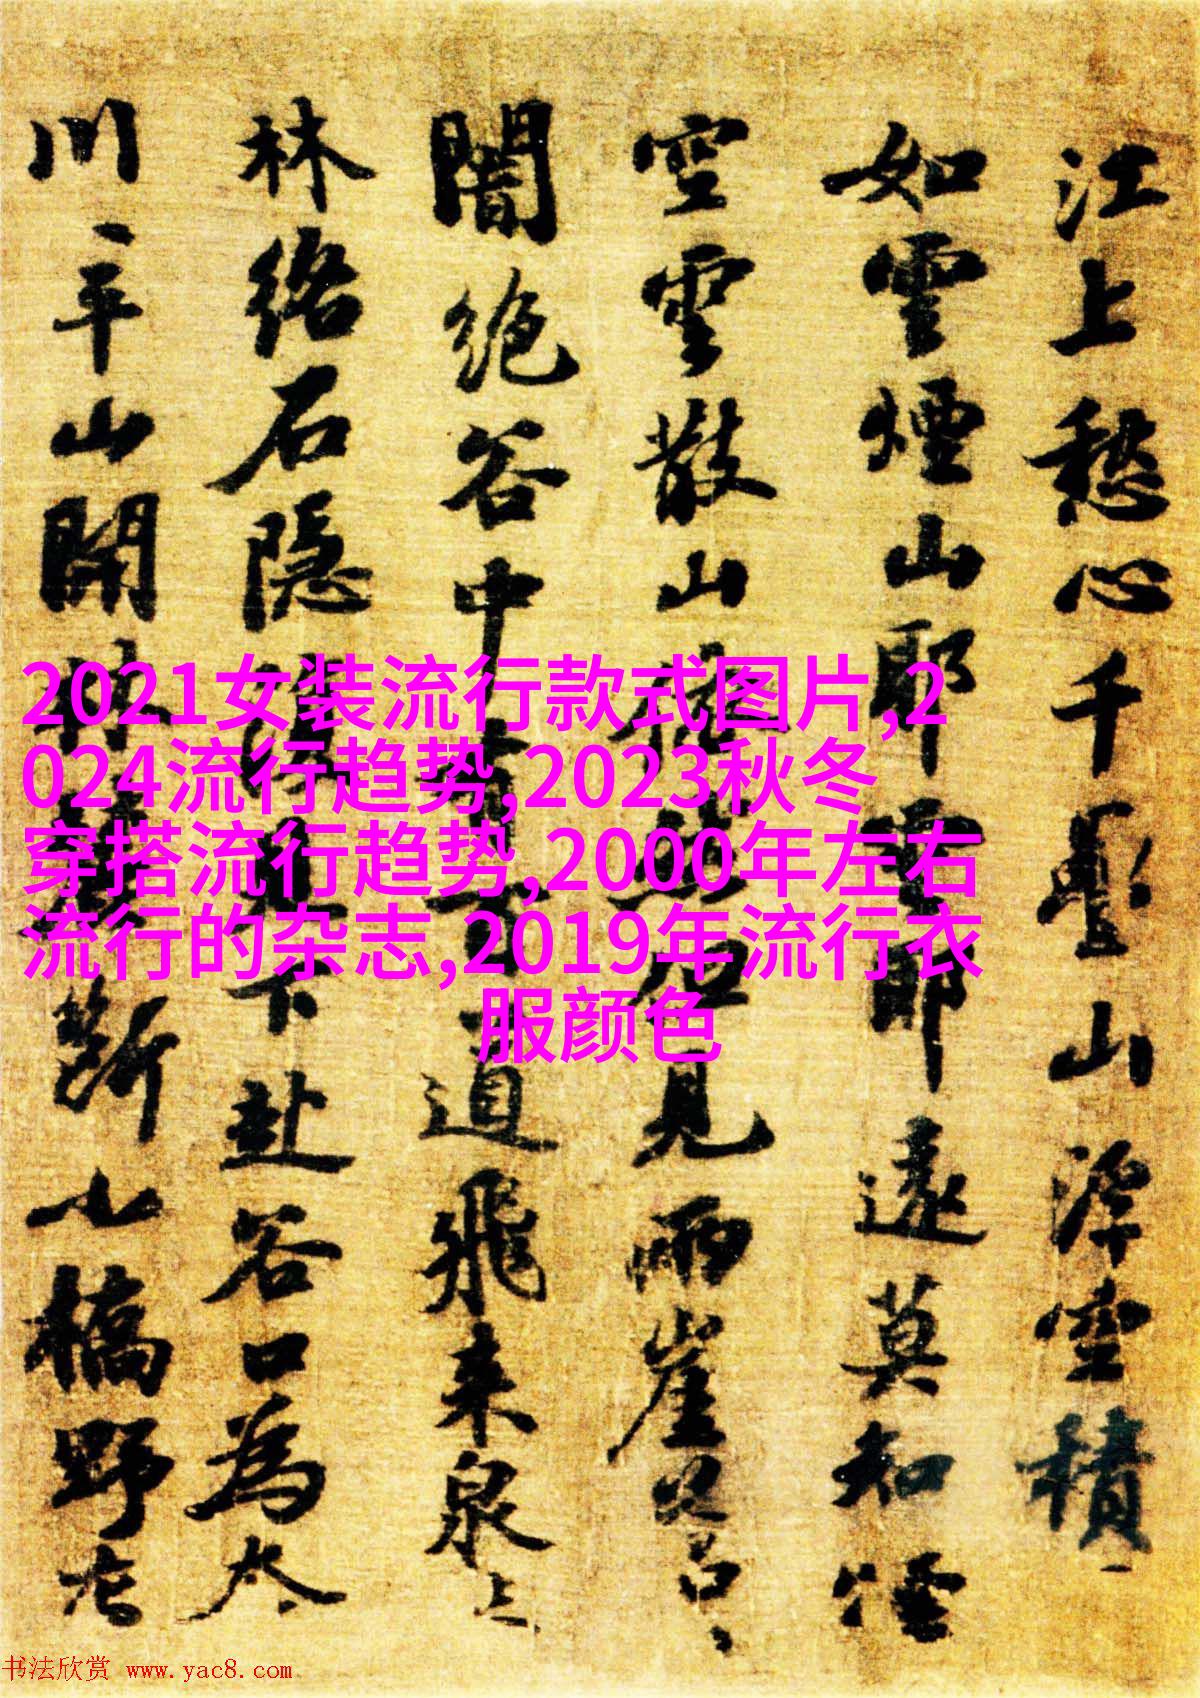 江上愁心千疊山浮空積
如雲煙山耶雲耶遠莫知煙
空雲散山依然但見兩崖蒼蒼
闇絕谷中道飛來泉
林絡石隱見下赴谷口為
川平山開林斷小橋野店
2021女装流行款式图片,2
024流行趋势,2023秋冬
穿搭流行趋势,2000年左右
流行的杂志,2019年流行衣
服颜色
书法欣赏 www.yac8.com